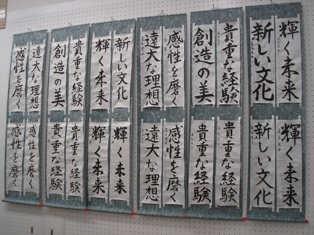 輝く未来
新しい文化
貴重な経験
創造の美
感性を磨く
遠大な理想
新しい文化
輝く未来
貴重な経験
創造の美
遠大な理想
感性を磨く
輝く未来
新しい文化
貴重な経験
貴重な経験
感性を磨く
遠大な理想
輝く未来
輝く未来
貴重な経験
貴重な経験
感性を磨く
感性を磨く